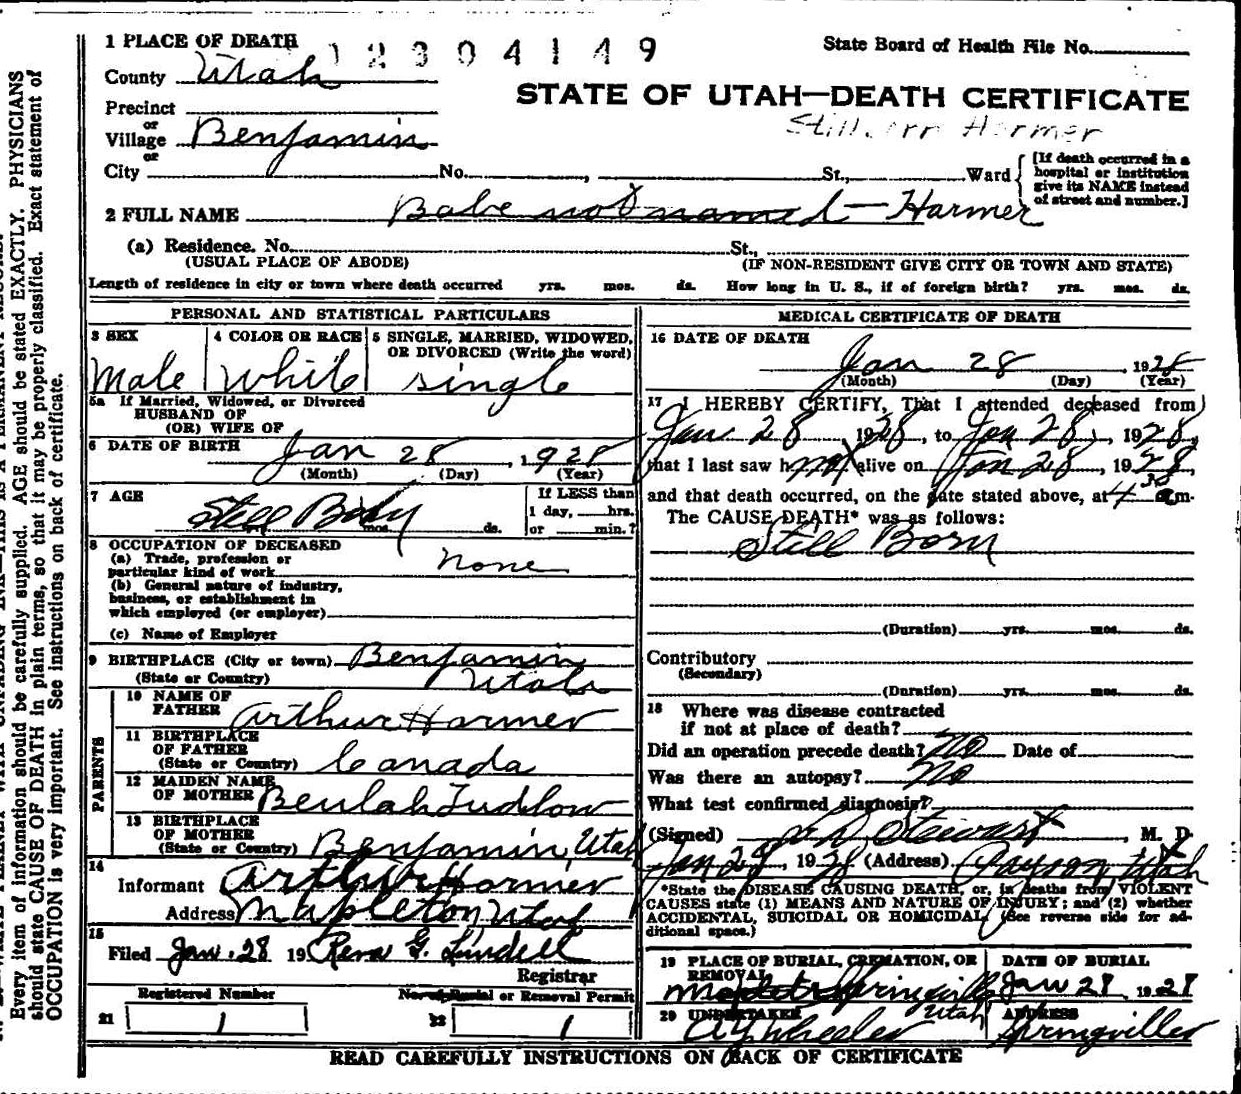 1 PLACE OF DEATH 12304149 State Board of Health File No.
County Utah
STATE OF UTAH—DEATH CERTIFICATE
Precinct
or
Stillborn Harmer
Village Benjamin
or
City No. , St., Ward [If death occurred in a hospital or institution give its NAME instead of street and number.]
2 FULL NAME Babe not named Harmer
(a) Residence. No. St.,
(USUAL PLACE OF ABODE) (IF NON-RESIDENT GIVE CITY OR TOWN AND STATE)
Length of residence in city or town where death occurred yrs. mos. ds. How long in U. S., if of foreign birth? yrs. mos. ds.
PERSONAL AND STATISTICAL PARTICULARS
3 SEX 4 COLOR OR RACE 5 SINGLE, MARRIED, WIDOWED, OR DIVORCED (Write the word)
Male White single
5a If Married, Widowed, or Divorced
HUSBAND OF
(OR) WIFE OF
6 DATE OF BIRTH Jan 28, 1928
(Month) (Day) (Year)
7 AGE Still Born
yrs. mos. ds.
If LESS than
1 day, hrs.
or min.?
8 OCCUPATION OF DECEASED
(a) Trade, profession or
particular kind of work None
(b) General nature of industry,
business, or establishment in
which employed (or employer)
(c) Name of Employer
9 BIRTHPLACE (City or town) Benjamin
(State or Country) Utah
PARENTS
10 NAME OF
FATHER Arthur Harmer
11 BIRTHPLACE
OF FATHER
(State or Country) Canada
12 MAIDEN NAME
OF MOTHER Beulah Ludlow
13 BIRTHPLACE
OF MOTHER
(State or Country) Benjamin, Utah
14
Informant Arthur Harmer
Address Mapleton Utah
15
Filed Jan. 28 19 Rena G. Lindell
Registrar
Registered Number No. of Burial or Removal Permit
21 1 22 1
MEDICAL CERTIFICATE OF DEATH
16 DATE OF DEATH
Jan 28, 1928
(Month) (Day) (Year)
17 I HEREBY CERTIFY, That I attended deceased from
Jan 28, 1928, to Jan 28, 1928,
that I last saw h alive on Jan 28, 1928,
and that death occurred, on the date stated above, at 4 30 m.
The CAUSE DEATH* was as follows:
Still Born
(Duration) yrs. mos. ds.
Contributory
(Secondary)
(Duration) yrs. mos. ds.
18 Where was disease contracted
if not at place of death?
Did an operation precede death? No Date of
Was there an autopsy? No
What test confirmed diagnosis?
(Signed) Stewart M. D.
Jan 28, 1928 (Address) Payson, Utah
*State the DISEASE CAUSING DEATH, or, in deaths from VIOLENT
CAUSES state (1) MEANS AND NATURE OF INJURY; and (2) whether
ACCIDENTAL, SUICIDAL OR HOMICIDAL. (See reverse side for ad-
ditional space.)
19 PLACE OF BURIAL, CREMATION, OR REMOVAL DATE OF BURIAL
Springville Utah Jan 28 1928
20 UNDERTAKER ADDRESS
A Y Wheeler Springville
READ CAREFULLY INSTRUCTIONS ON BACK OF CERTIFICATE
Every item of information should be carefully supplied. AGE should be stated EXACTLY. PHYSICIANS
should state CAUSE OF DEATH in plain terms, so that it may be properly classified. Exact statement of
OCCUPATION is very important. See instructions on back of certificate.